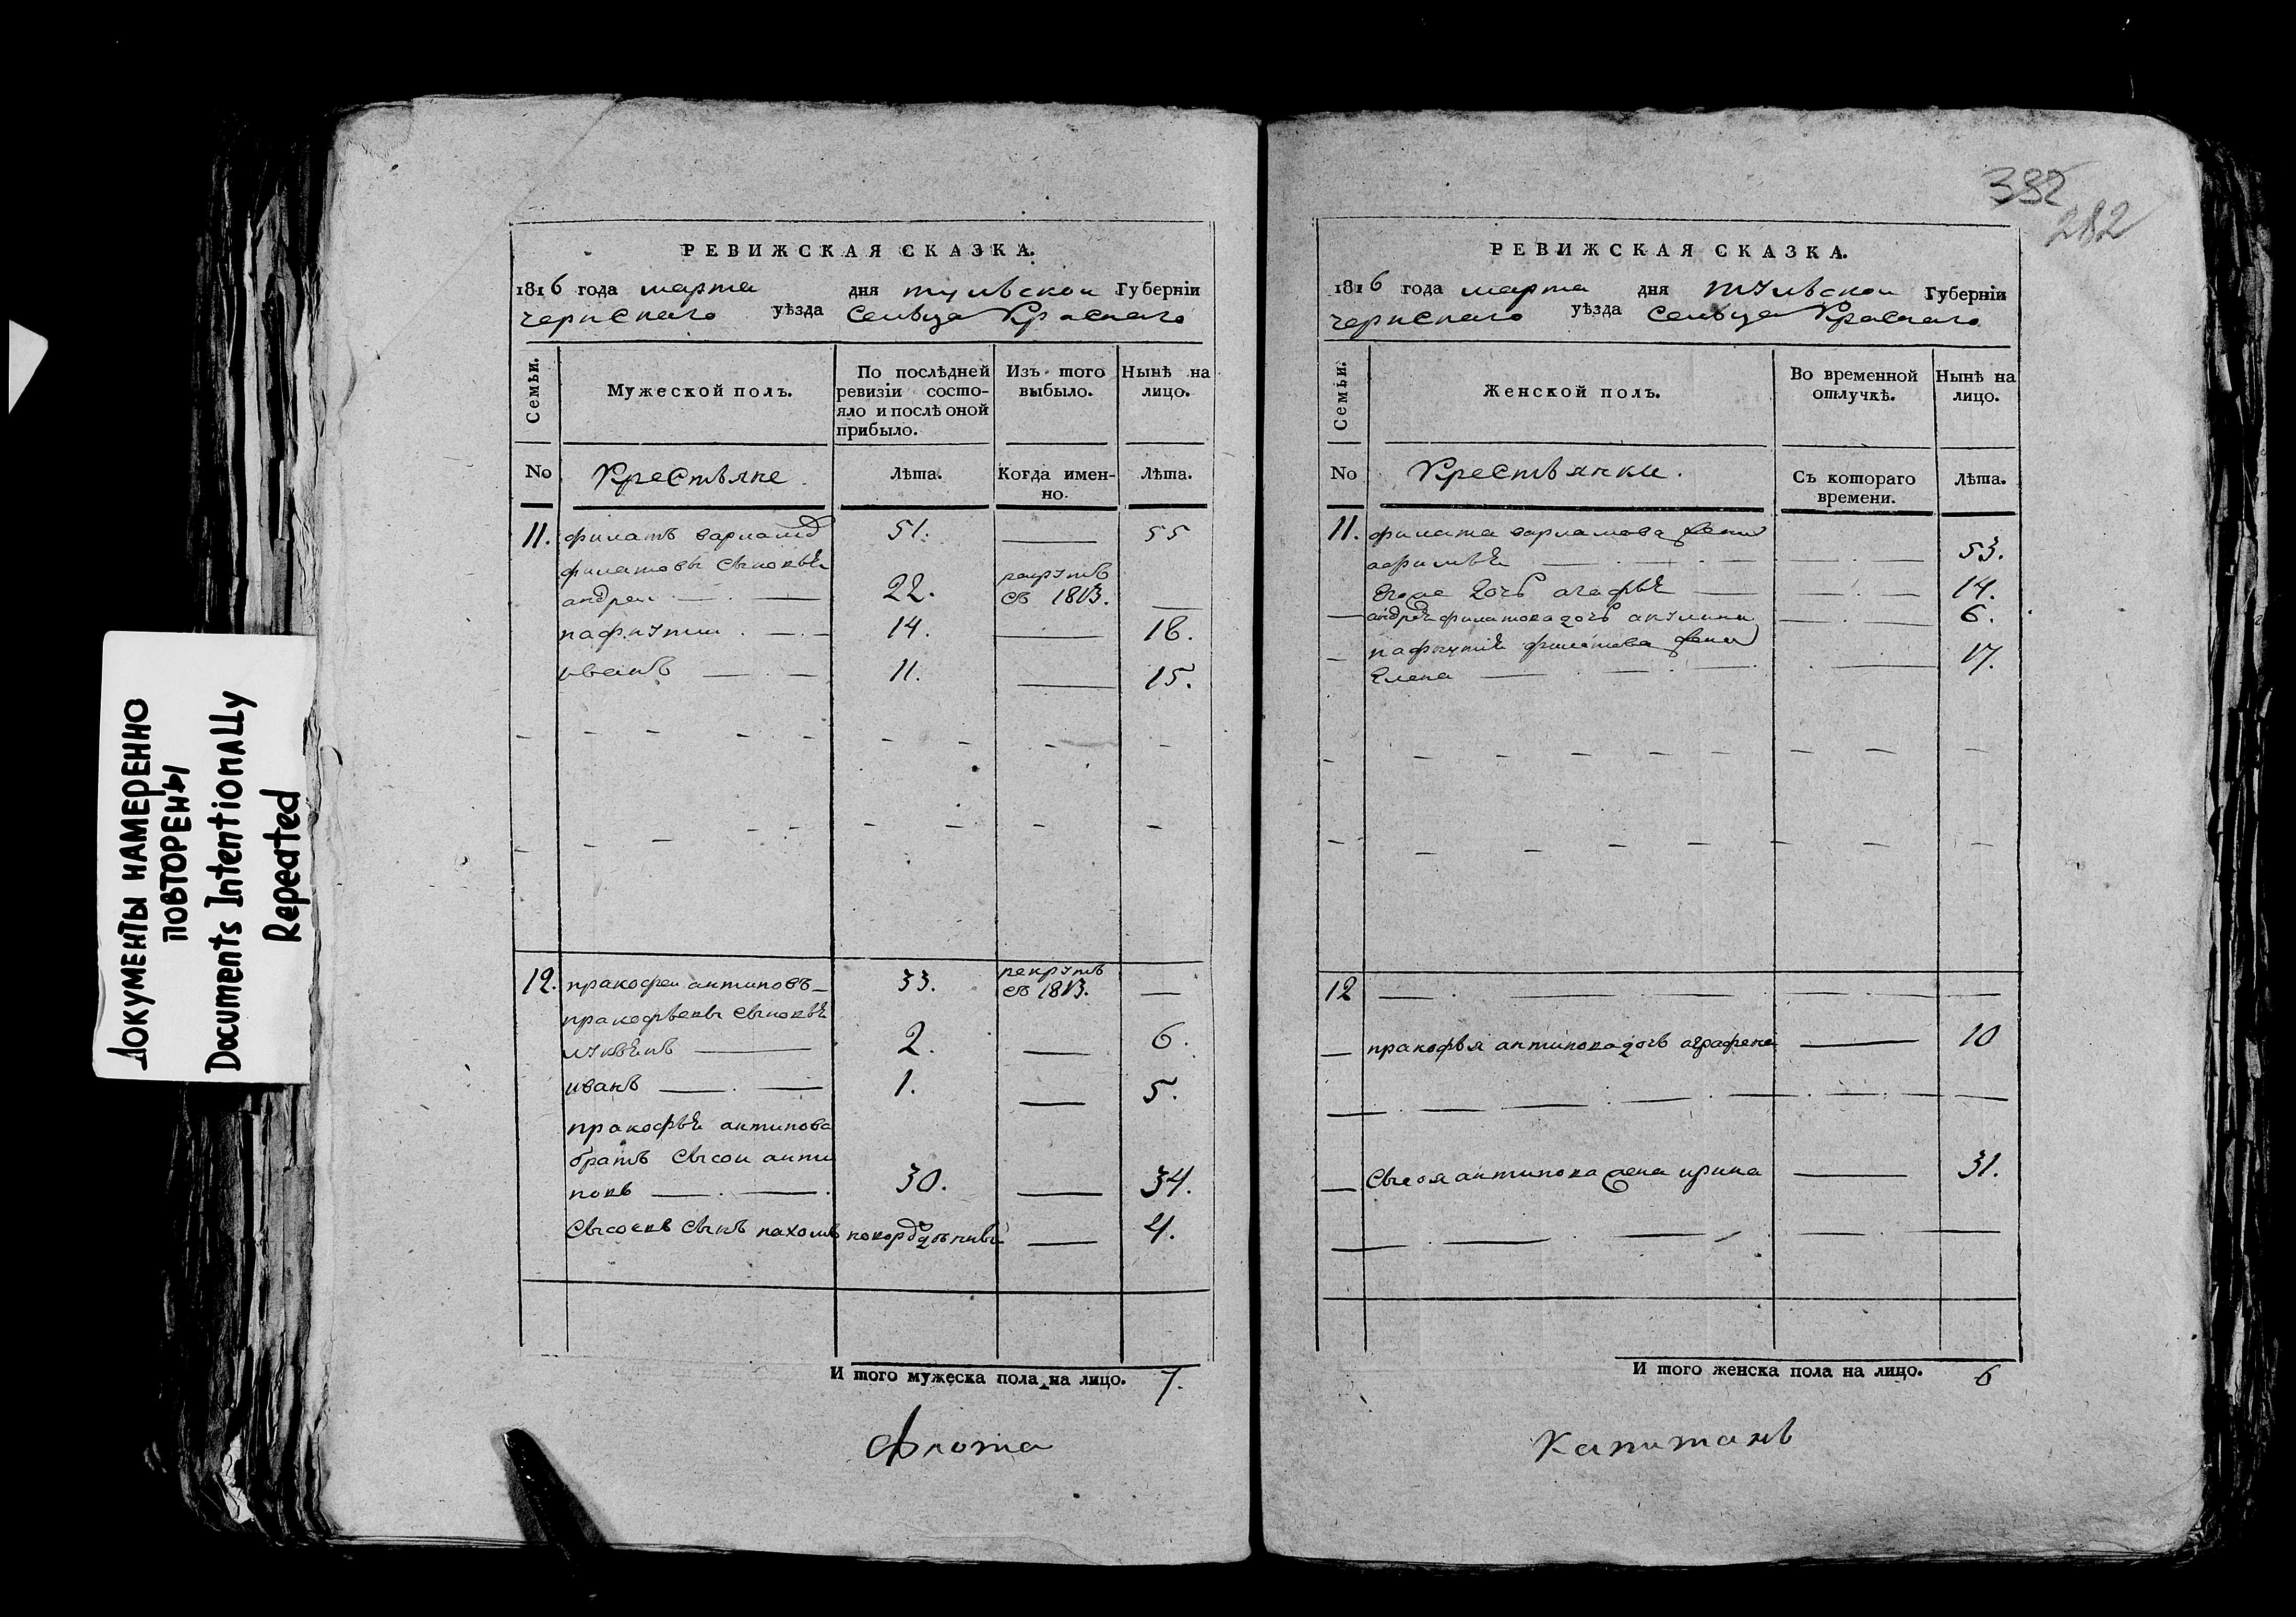 ДОКУМЕНТЫ НАМЕРЕННО
ПОВТОРЕНЫ
Documents Intentionally
Repeated
РЕВИЖСКАЯ СКАЗКА.
1816 года марта дня тульскои Губерніи
чернскаго уѣзда Сельца Краснаго
Семьи.
Мужеской полъ.
По послѣдней
ревизіи состо-
яло и послѣ оной
прибыло.
Изъ того
выбыло.
Нынѣ на
лицо.
No
Крестьяне.
Лѣта.
Когда имен-
но.
Лѣта.
11. филатъ варламов 51. 55
филатовы сыновьи
андреи 22. рекрутъ
съ 1813.
пафнутии 14. 18.
иванъ 11. 15.
12. пракофеи антиповъ 33. рекрутъ
съ 1813.
пракофьевы сыновьи
лукьянъ 2. 6.
иванъ 1. 5.
пракофьи антипова
братъ сысои анти
повъ 30. 34.
Сысоевъ сынъ пахомъ новорожденный 4.
И того мужеска пола на лицо. 7.
Флота
382
282
РЕВИЖСКАЯ СКАЗКА.
1816 года марта дня тульскои Губерніи
чернскаго уѣзда Сельца Краснаго
Семьи.
Женской полъ.
Во временной
отлучкѣ.
Нынѣ на
лицо.
No
Крестьянки.
Съ котораго
времени.
Лѣта.
11. филата варламова жена
53.
дочь агафья 14.
андрея филатова дочь акулина 6.
пафнутия филатова жена
Елена 17.
12
пракофья антипова дочь аграфена 10
Сысоя антипова жена ирина 31.
И того женска пола на лицо. 6
Капитанъ